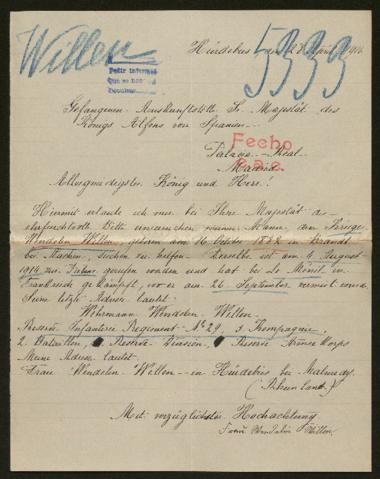 Willen
Hürdebis den 28 April 1916
5333
Pedir informes
Gefangenen-Auskunftstelle Sr. Majestät des
Königs Alfons von Spanien
Fecho
Palacio-Real
Madrid
Allergnädigster König und Herr!
Hiermit erlaube ich mir bei Ihre Majestät
Bitte meinen Mann, den Krieger
Wendelin Willen, geboren am 16 October 1882 in
bei Aachen, suchen zu helfen. Derselbe ist am 4 August
1914 zur gerufen worden und hat bei Le Mesnil in
Frankreich gekämpft, wo er am 26 September vermisst wurde.
Seine letzte Adresse lautet:
Wehrmann Wendelin Willen
Reserve Infanterie Regiment No 29, 3 Kompagnie,
2. Bataillon, Reserve Division, Reserve Armee Corps
Meine Adresse lautet:
Frau Wendelin Willen in Hürdebis bei Malmedy
(Rheinland.)
Mit vorzüglichster Hochachtung
Frau Wendelin Willen